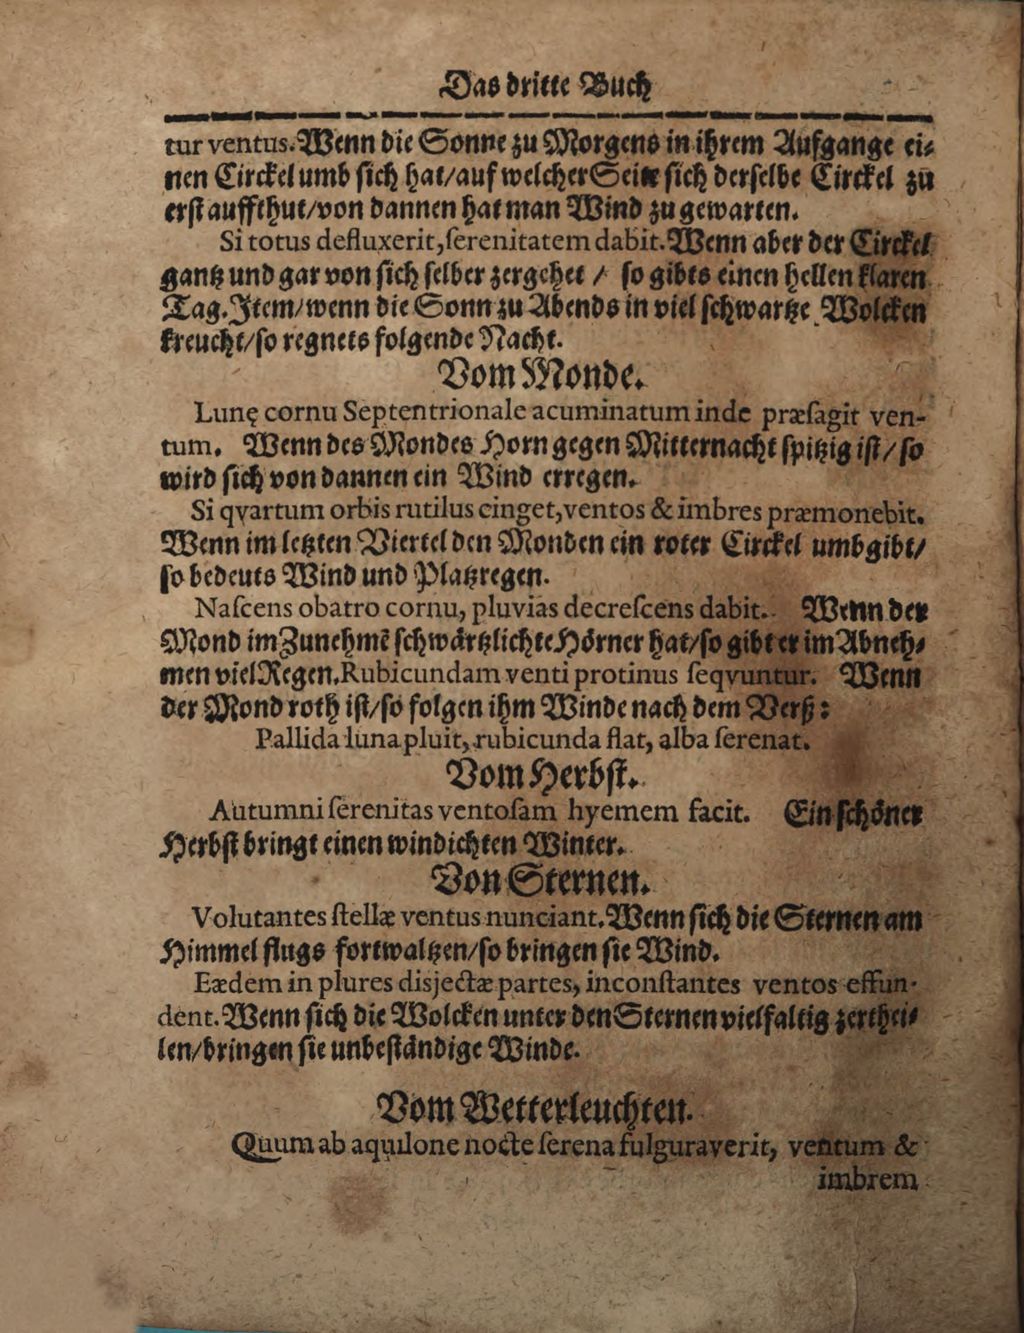 Das dritte Buch
tur ventus. Wenn die Sonne zu Morgens in ihrem Aufgange ei-
nen Circkel umb sich hat/auf welcher Seite sich derselbe Circkel zu
erst auffthut/von dannen hat man Wind zu gewarten.
Si totus defluxerit, ſerenitatem dabit. Wenn aber der Circkel
gantz und gar von sich selber zergehet / so gibts einen hellen klaren
Tag. Item/wenn die Sonn zu Abends in viel schwartze Wolcken
kreucht/so regnets folgende Nacht.
Vom Monde.
Lunę cornu Septentrionale acuminatum inde præſagit ven-
tum. Wenn des Mondes Horn gegen Mitternacht spitzig ist/so
wird sich von dannen ein Wind erregen.
Si qvartum orbis rutilus cinget, ventos & imbres præmonebit.
Wenn im letzten Viertel den Monden ein roter Circkel umbgibt/
so bedeuts Wind und Platzregen.
Naſcens obatro cornu, pluvias decreſcens dabit. Wenn der
Mond im Zunehmẽ schwärtzlichte Hörner hat/so gibt er im Abneh-
men viel Regen. Rubicundam venti protinus ſeqvuntur. Wenn
der Mond roth ist/so folgen ihm Winde nach dem Verß:
Pallida luna pluit, rubicunda flat, alba ſerenat.
Vom Herbst.
Autumni ſerenitas ventoſam hyemem facit. Ein schöner
Herbst bringt einen windichten Winter.
Von Sternen.
Volutantes ſtellæ ventus nunciant. Wenn sich die Sternen am
Himmel flugs fortwaltzen/so bringen sie Wind.
Eædem in plures disjectæ partes, inconſtantes ventos effun-
dent. Wenn sich die Wolcken unter den Sternen vielfaltig zerthei-
len/bringen sie unbeständige Winde.
Vom Wetterleuchten.
Quum ab aquilone nocte ſerena fulguraverit, ventum &
imbrem